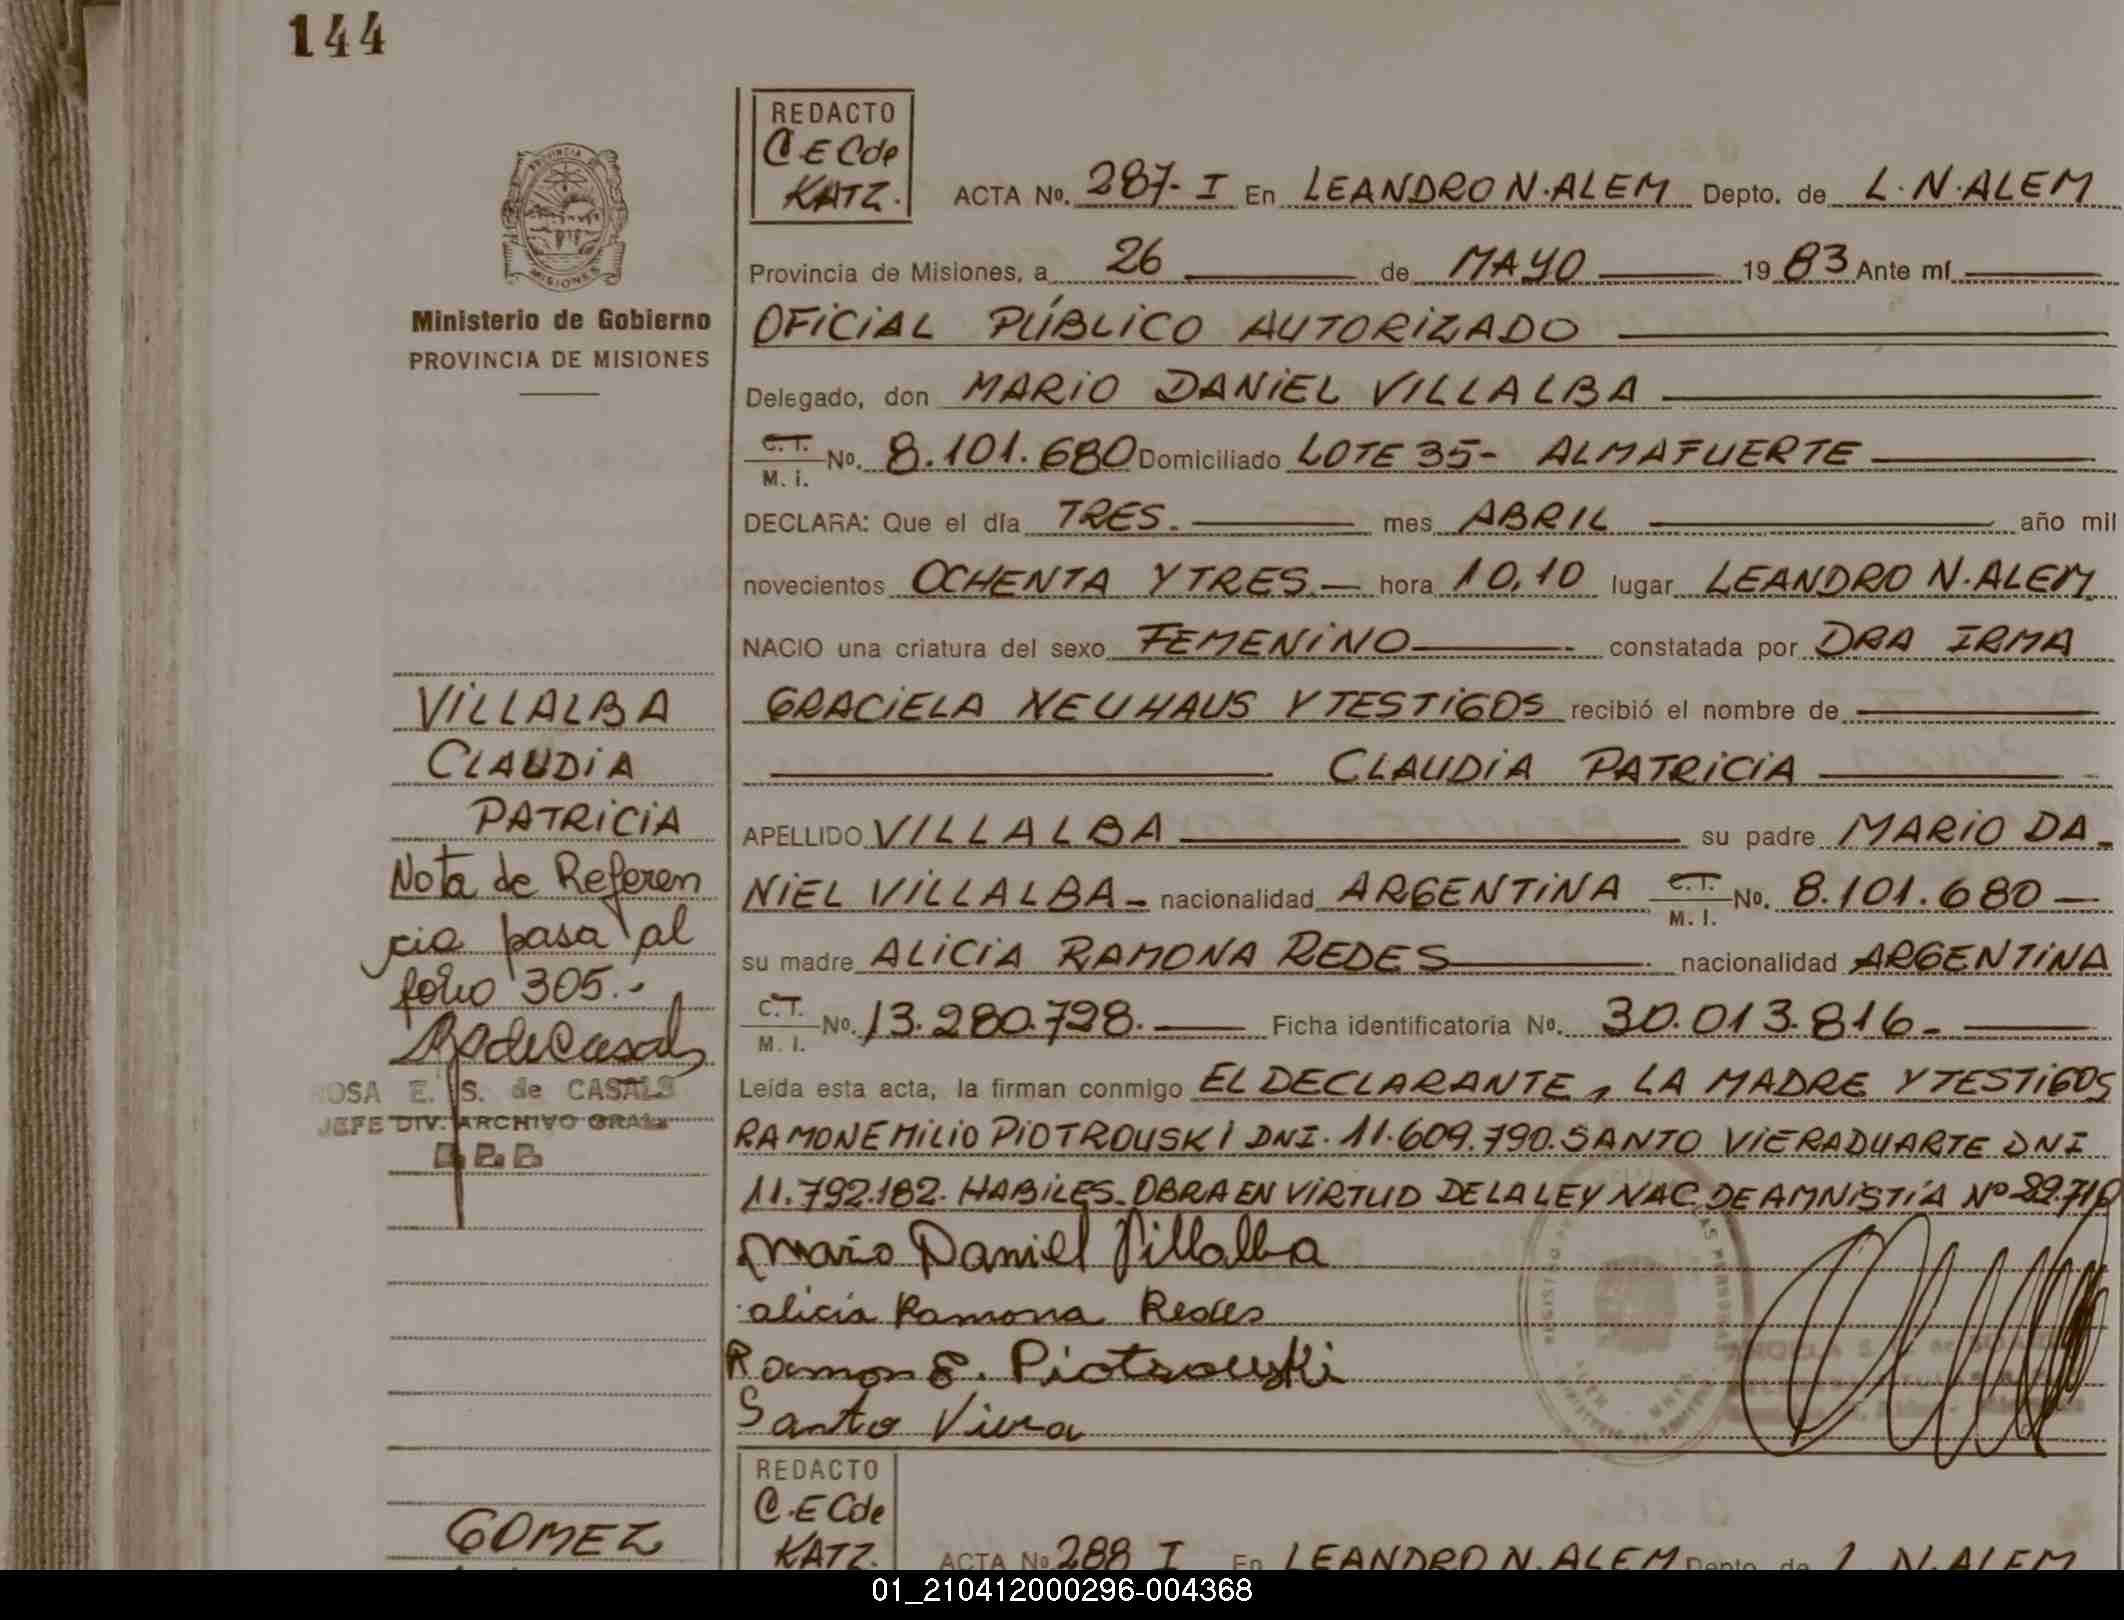 144
REDACTO
C.E Cde
KATZ.
ACTA No. 287-I En LEANDRO N.ALEM Depto. de L.N.ALEM
PROVINCIA DE
MISIONES
Ministerio de Gobierno
PROVINCIA DE MISIONES
Provincia de Misiones, a 26 de MAYO 19 83 Ante mí
OFICIAL PÚBLICO AUTORIZADO
Delegado, don MARIO DANIEL VILLALBA
C.T. M. I. No. 8.101.680 Domiciliado LOTE 35- ALMAFUERTE
DECLARA: Que el día TRES. mes ABRIL año mil
novecientos OCHENTA Y TRES.— hora 10,10 lugar LEANDRO N.ALEM
NACIO una criatura del sexo FEMENINO constatada por DRA IRMA
GRACIELA NEUHAUS Y TESTIGOS recibió el nombre de
CLAUDIA PATRICIA
APELLIDO VILLALBA su padre MARIO DA-
NIEL VILLALBA- nacionalidad ARGENTINA C.T. M. I. No. 8.101.680—
su madre ALICIA RAMONA REDES nacionalidad ARGENTINA
C.T. M. I. No. 13.280.798.— Ficha identificatoria No. 30.013.816.-
Leída esta acta, la firman conmigo EL DECLARANTE, LA MADRE Y TESTIGOS
RAMON EMILIO PIOTROUSKI DNI. 11.609.790. SANTO VIERA DUARTE DNI
11.792.182. HABILES. OBRA EN VIRTUD DE LA LEY NAC. DE AMNISTÍA Nº 22.710
Mario Daniel Villalba
alicia Ramona Redes
Ramon E. Piotrouski
Santo Viera
VILLALBA
CLAUDIA
PATRICIA
Nota de Referen
cia pasa al
folio 305.-
ROSA E. S. de CASALS
JEFE DIV. ARCHIVO GRAL.
REDACTO
C.E Cde
KATZ.
GOMEZ
ACTA No 288 I En LEANDRO N.ALEM Depto. de L.N.ALEM
01_210412000296-004368